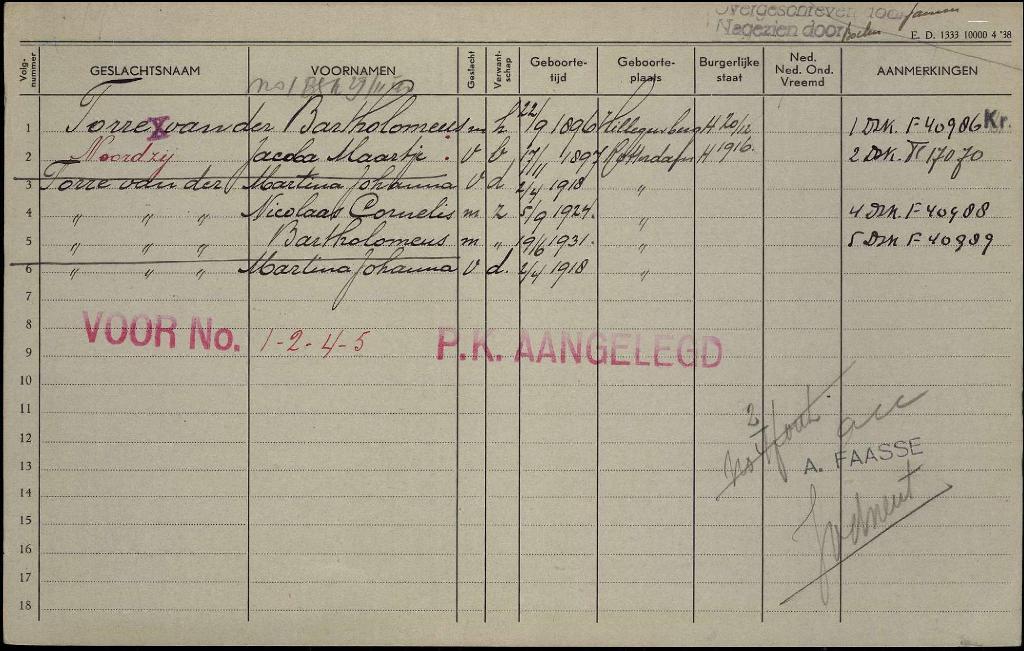 Overgeschreven door Jansen
Nagezien door
E. D. 1333 10000 4 '38
Volgnummer GESLACHTSNAAM VOORNAMEN Geslacht Verwantschap Geboortetijd Geboorteplaats Burgerlijke staat Ned. Ned. Ond. Vreemd AANMERKINGEN
1 Torre X van der Bartholomeus m h 22/9 1896 Hillegersberg H 20/12 1 Drk. F 40986 Kr.
2 Noordzij Jacoba Maartje v b 17/1 1897 Rotterdam H 1916. 2 Drk. TT 17070
3 Torre van der Martina Johanna v d 2/4 1918 "
4 " " " Nicolaas Cornelis m z 5/9 1924. " 4 Drk. F 40988
5 " " " Bartholomeus m " 19/6 1931. " 5 Drk F 40989
6 " " " Martina Johanna v d. 2/4 1918 "
7
8 VOOR No. 1-2-4-5 P.K. AANGELEGD
9
10
11
12
13 A. FAASSE
14
15
16
17
18